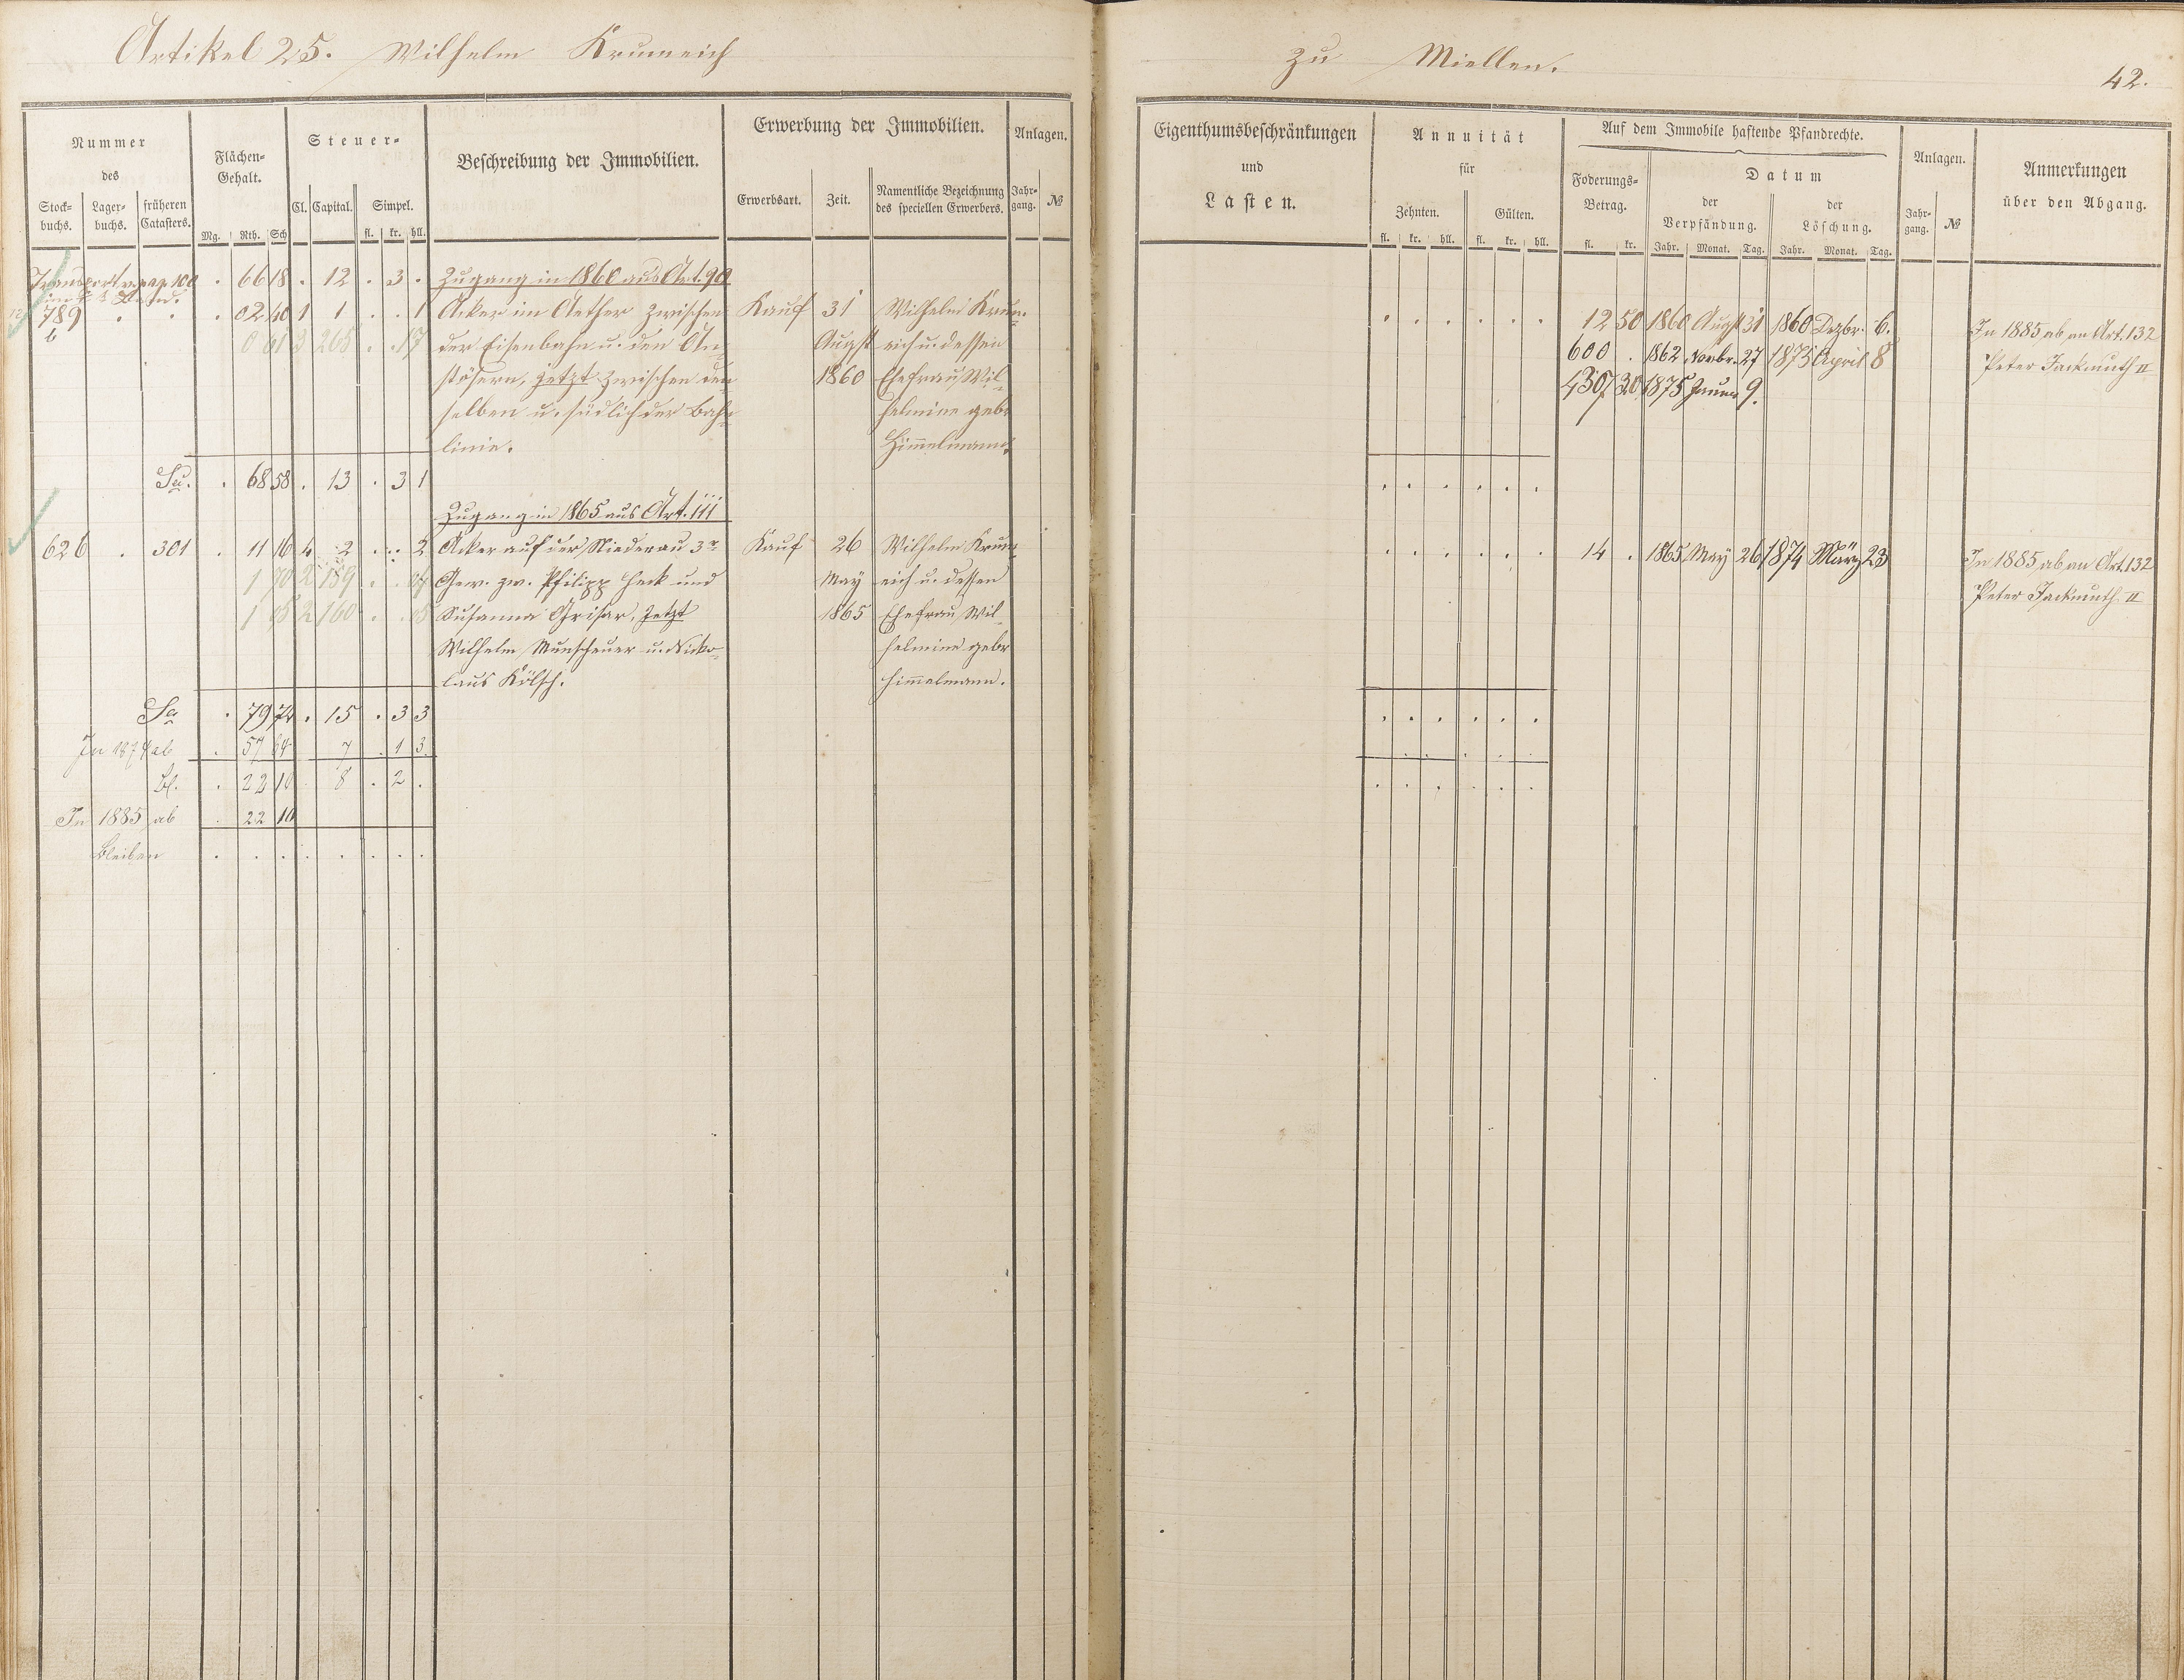 Artikel 25. Wilhelm Krumeich
zu Miellen.
42.
Nummer
des
Stock-
buchs.
Lager-
buchs.
früheren
Catasters.
Flächen-
Gehalt.
Mg. Rth. Sch
Steuer-
Cl. Capital. Simpel.
fl. kr. hll.
Beschreibung der Immobilien.
Erwerbung der Immobilien.
Erwerbsart. Zeit.
Namentliche Bezeichnung
des speciellen Erwerbers.
Anlagen.
Jahr-
gang. №
Eigenthumsbeschränkungen
und
Lasten.
Annuität
für
Zehnten. Gülten.
fl. kr. hll. fl. kr. hll.
Auf dem Immobile haftende Pfandrechte.
Foderungs-
Betrag.
fl. kr.
Datum
der
Verpfändung.
Jahr. Monat. Tag.
der
Löschung.
Jahr. Monat. Tag.
Anlagen.
Jahr-
gang. №
Anmerkungen
über den Abgang.
Transport v. pag. 100 . 66 18 . 12 . 3 . Zugang in 1860 aus Art. 90
789 . . . 02 40 1 1 . . 1 Acker im Aether zwischen Kauf 31 Wilhelm Krum-
b
0 61 3 265 . . 17 der Eisenbahn u. den An- August eich u. dessen
stösern, jetzt zwischen den- 1860 Ehefrau Wil-
selben u. südlich der Bahn- helmine geb.
linie. Himmelmann.
. . . . . . 12 50 1860 Augst 31 1860 Dezbr. 6. In 1885 ab an Art. 132
600 . 1862 Novbr. 27 1875 April 8 Peter Jackmuth II
4307 20 1875 Januar 9.
Sa. . 68 58 . 13 . 3 1
. . . . . .
Zugang in 1865 aus Art. 111
626 . 301 . 11 16 4 2 . . 2 Acker auf der Niederau 3r Kauf 26 Wilhelm Krum-
1 70 2 159 . . 04 Gew. zw. Philipp Heck und May eich u. dessen
1 05 2 160 . . 05 Susanna Grisar, Jetzt 1865 Ehefrau Wil-
Wilhelm Munscheuer u. Niko- helmine geb.
laus Kölsch. Himmelmann.
. . . . . . 14 . 1865 May 26 1874 März 23 In 1885 ab an Art. 132
Peter Jackmuth II
Sa . 79 74 . 15 . 3 3
. . . . . .
In 1874 ab . 57 64 7 . 1 3
Bl. . 22 10 8 . 2 .
. . . . . .
In 1885 ab . 22 10
bleiben . . . . . . . .